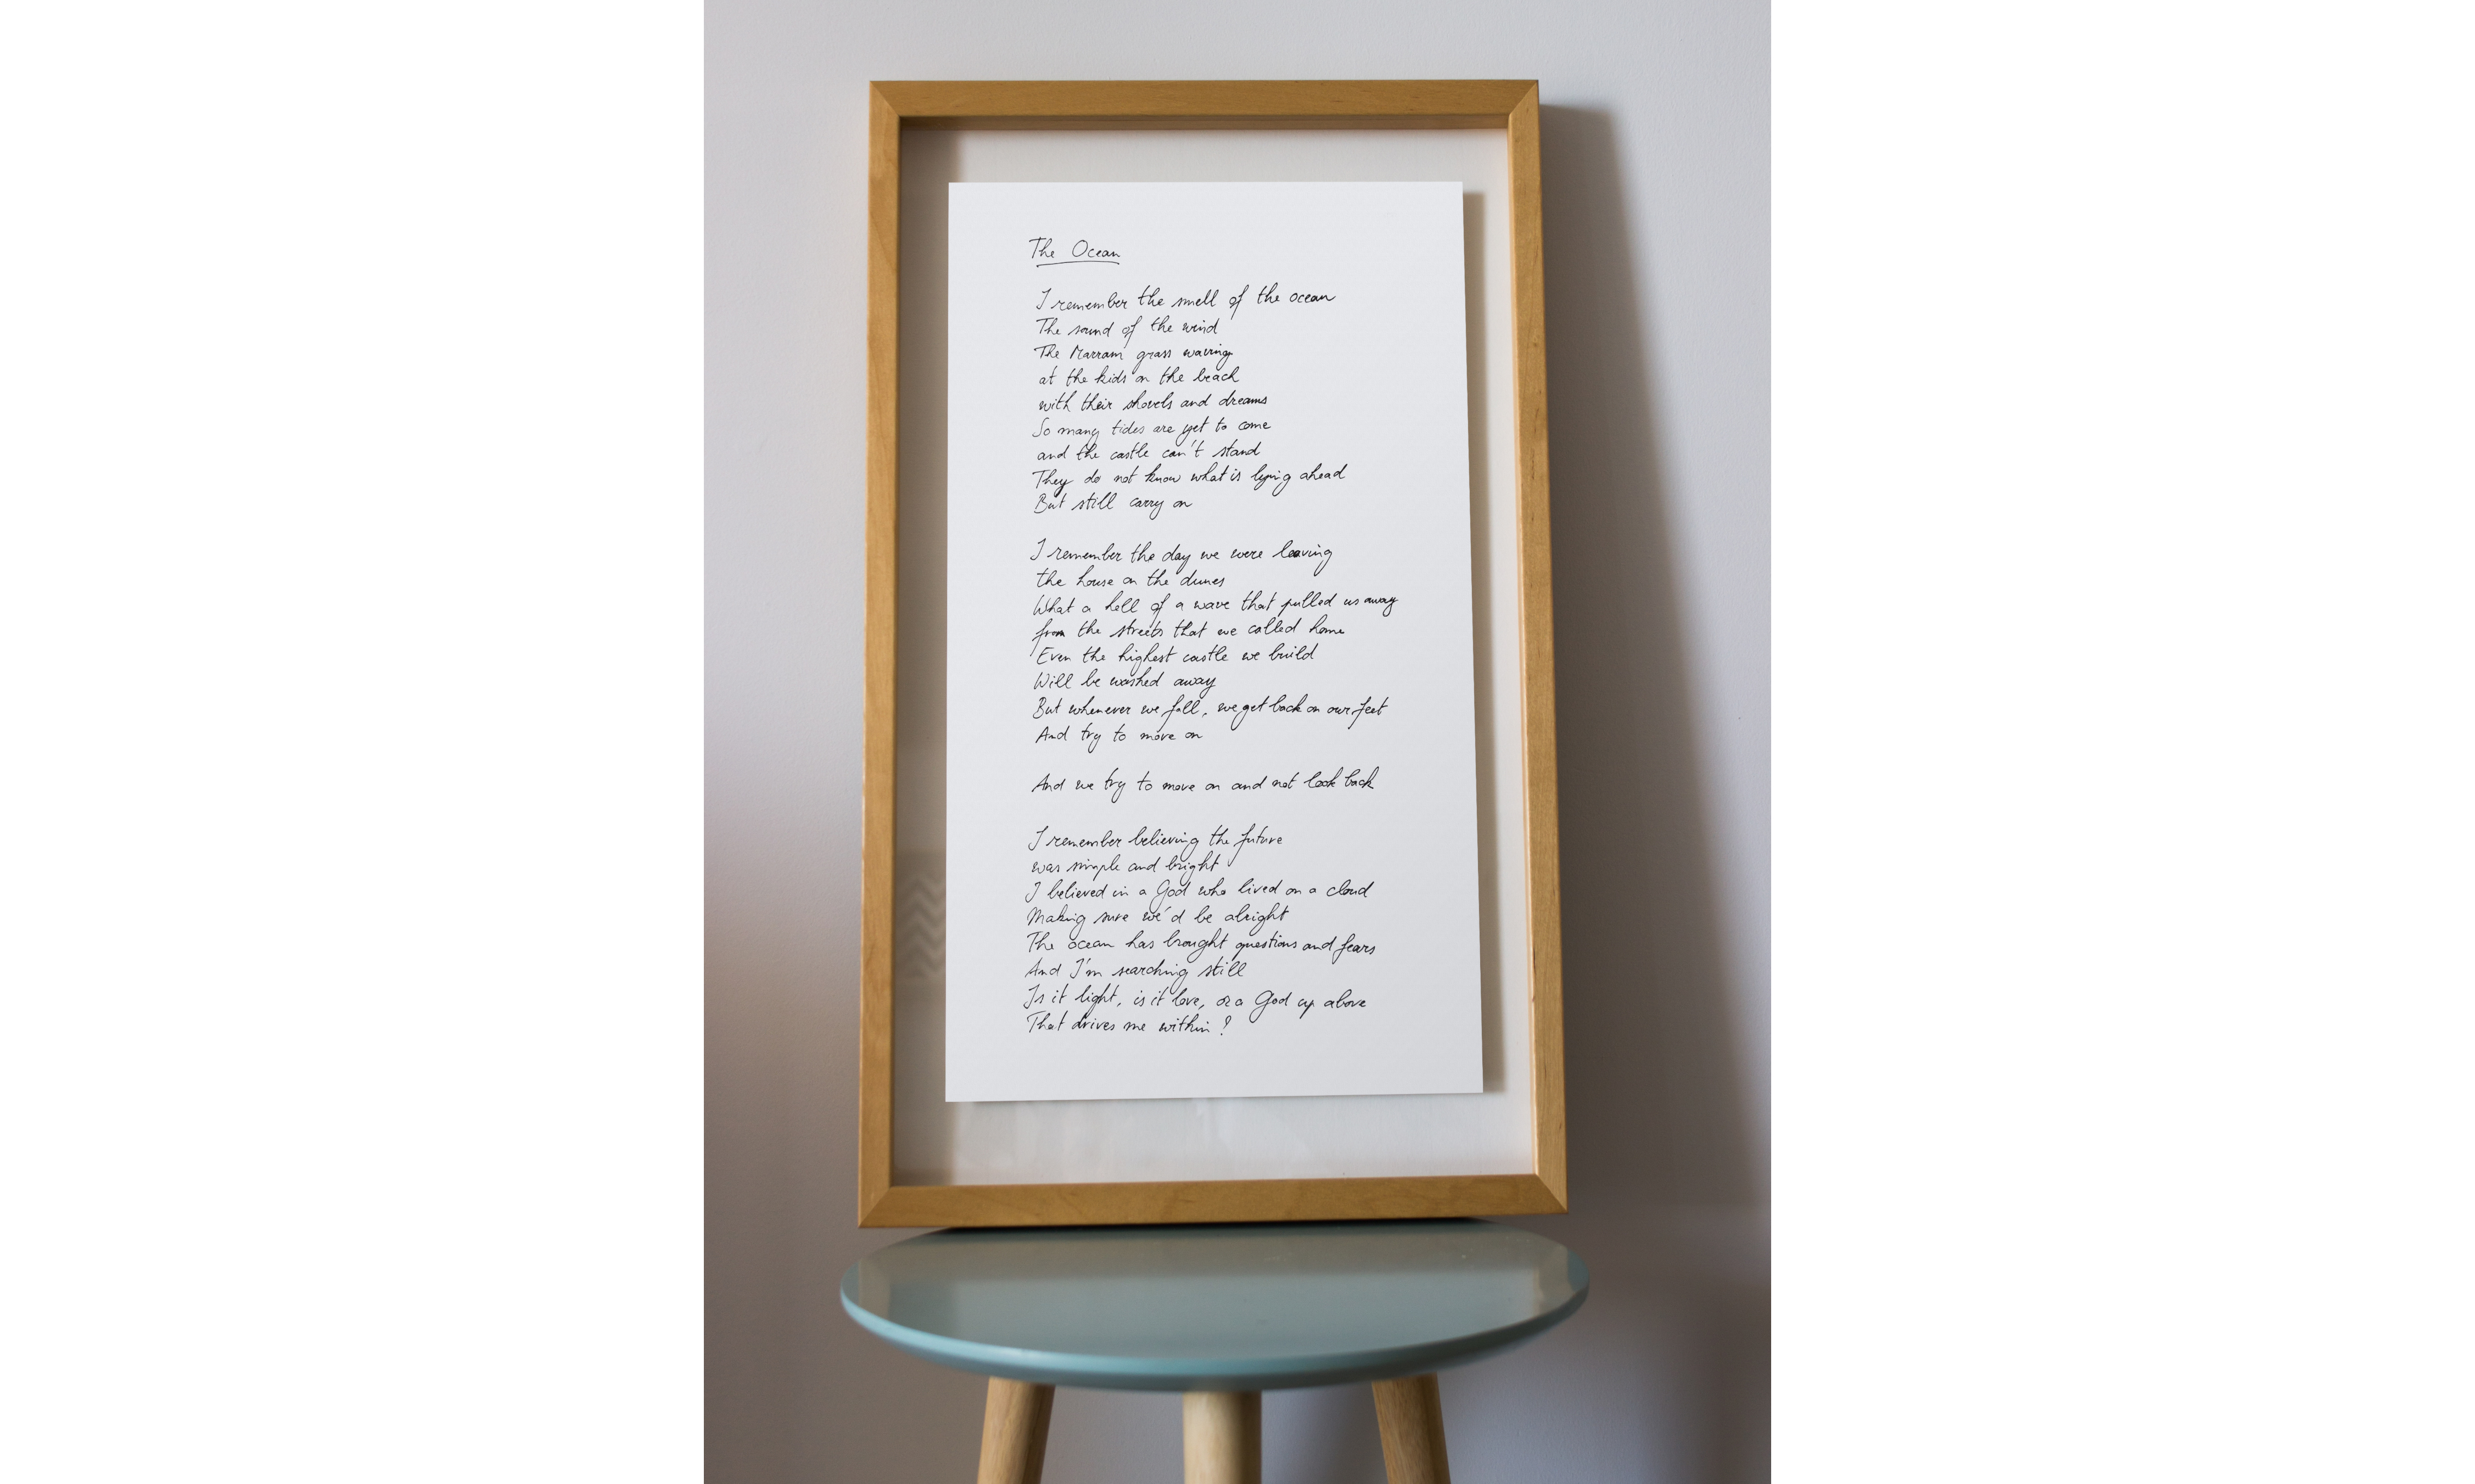 The Ocean
I remember the smell of the ocean
The sound of the wind
The Marram grass waving
at the kids on the beach
with their shovels and dreams
So many tides are yet to come
and the castle can't stand
They do not know what is lying ahead
But still carry on
I remember the day we were leaving
the house on the dunes
What a hell of a wave that pulled us away
from the streets that we called home
Even the highest castle we build
Will be washed away
But whenever we fall, we get back on our feet
And try to move on
And we try to move on and not look back
I remember believing the future
was simple and bright
I believed in a God who lived on a cloud
Making sure we'd be alright
The ocean has brought questions and fears
And I'm searching still
Is it light, is it love, or a God up above
That drives me within?